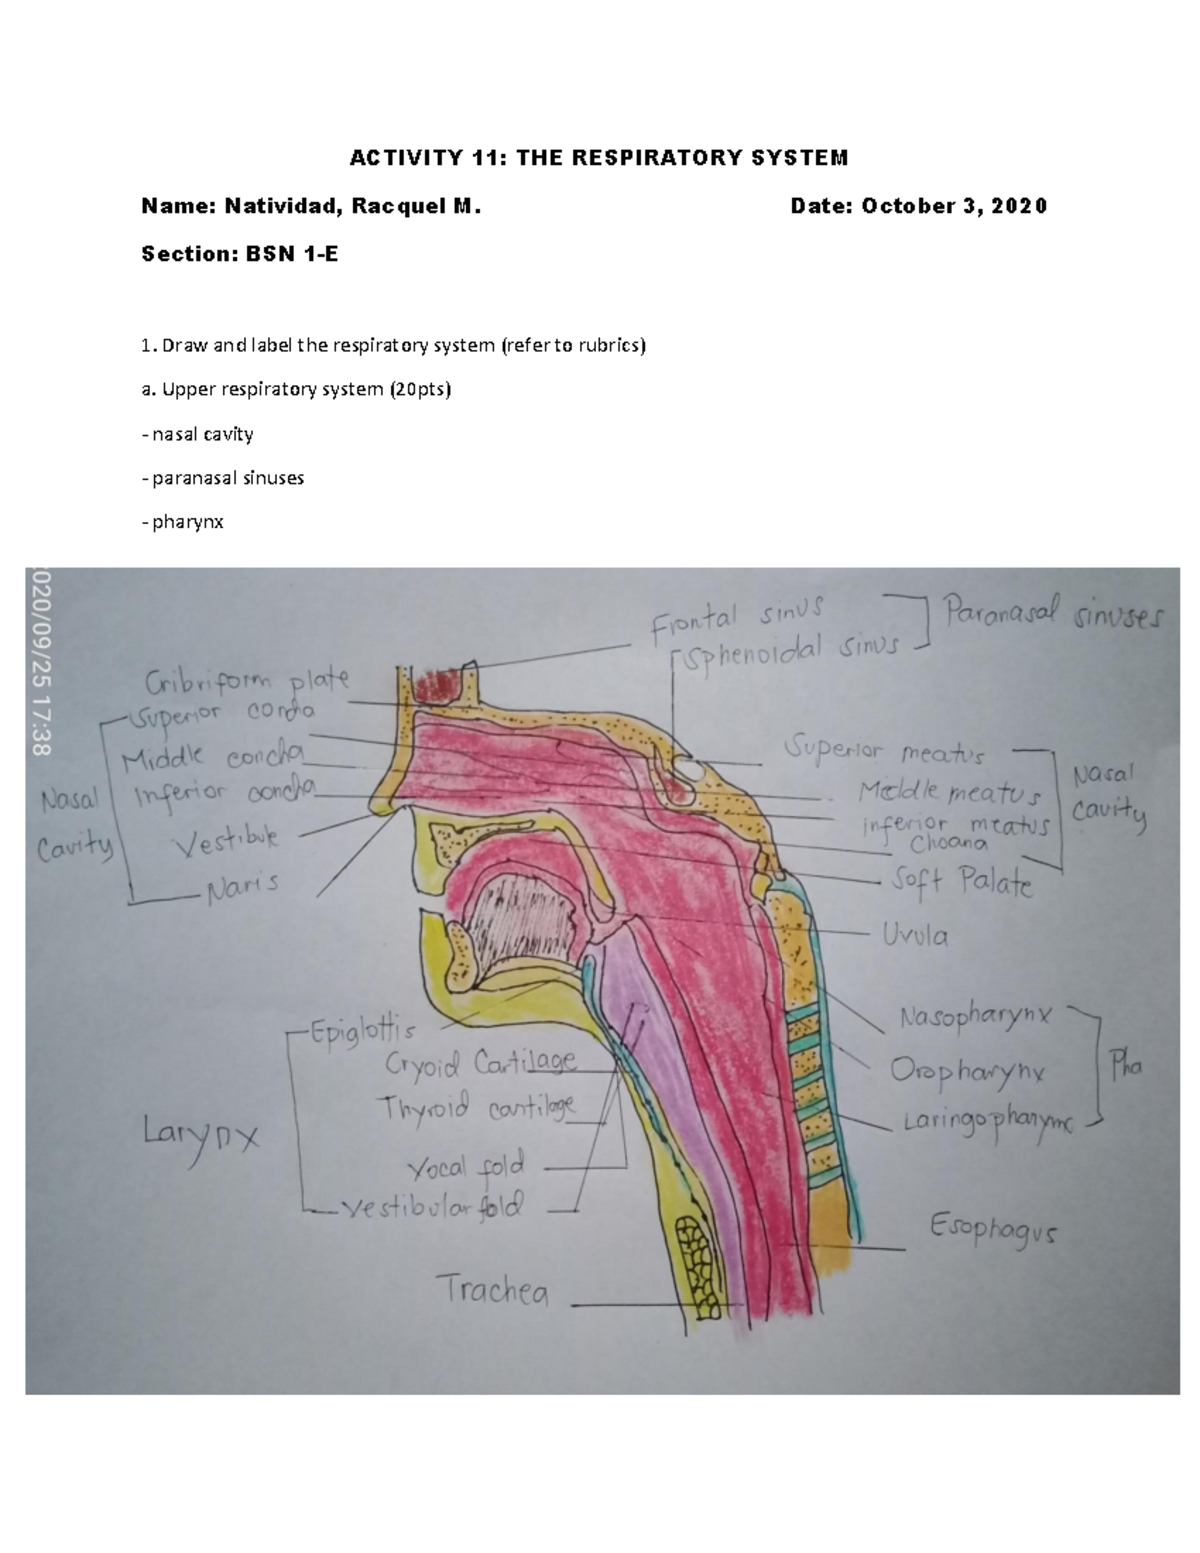 ACTIVITY 11: THE RESPIRATORY SYSTEM
Name: Natividad, Racquel M. Date: October 3, 2020
Section: BSN 1-E
1. Draw and label the respiratory system (refer to rubrics)
a. Upper respiratory system (20pts)
- nasal cavity
- paranasal sinuses
- pharynx
020/09/25 17:38
Frontal sinus
Sphenoidal sinus
Paranasal sinuses
Cribriform plate
Superior concha
Middle concha
Inferior concha
Nasal
Cavity
Vestibule
Naris
Superior meatus
Middle meatus
Inferior meatus
Choana
Nasal
Cavity
Soft Palate
Uvula
Nasopharynx
Oropharynx
Laringopharynx
Pha
Epiglottis
Cryoid Cartilage
Thyroid cartilage
Larynx
Vocal fold
Vestibular fold
Esophagus
Trachea